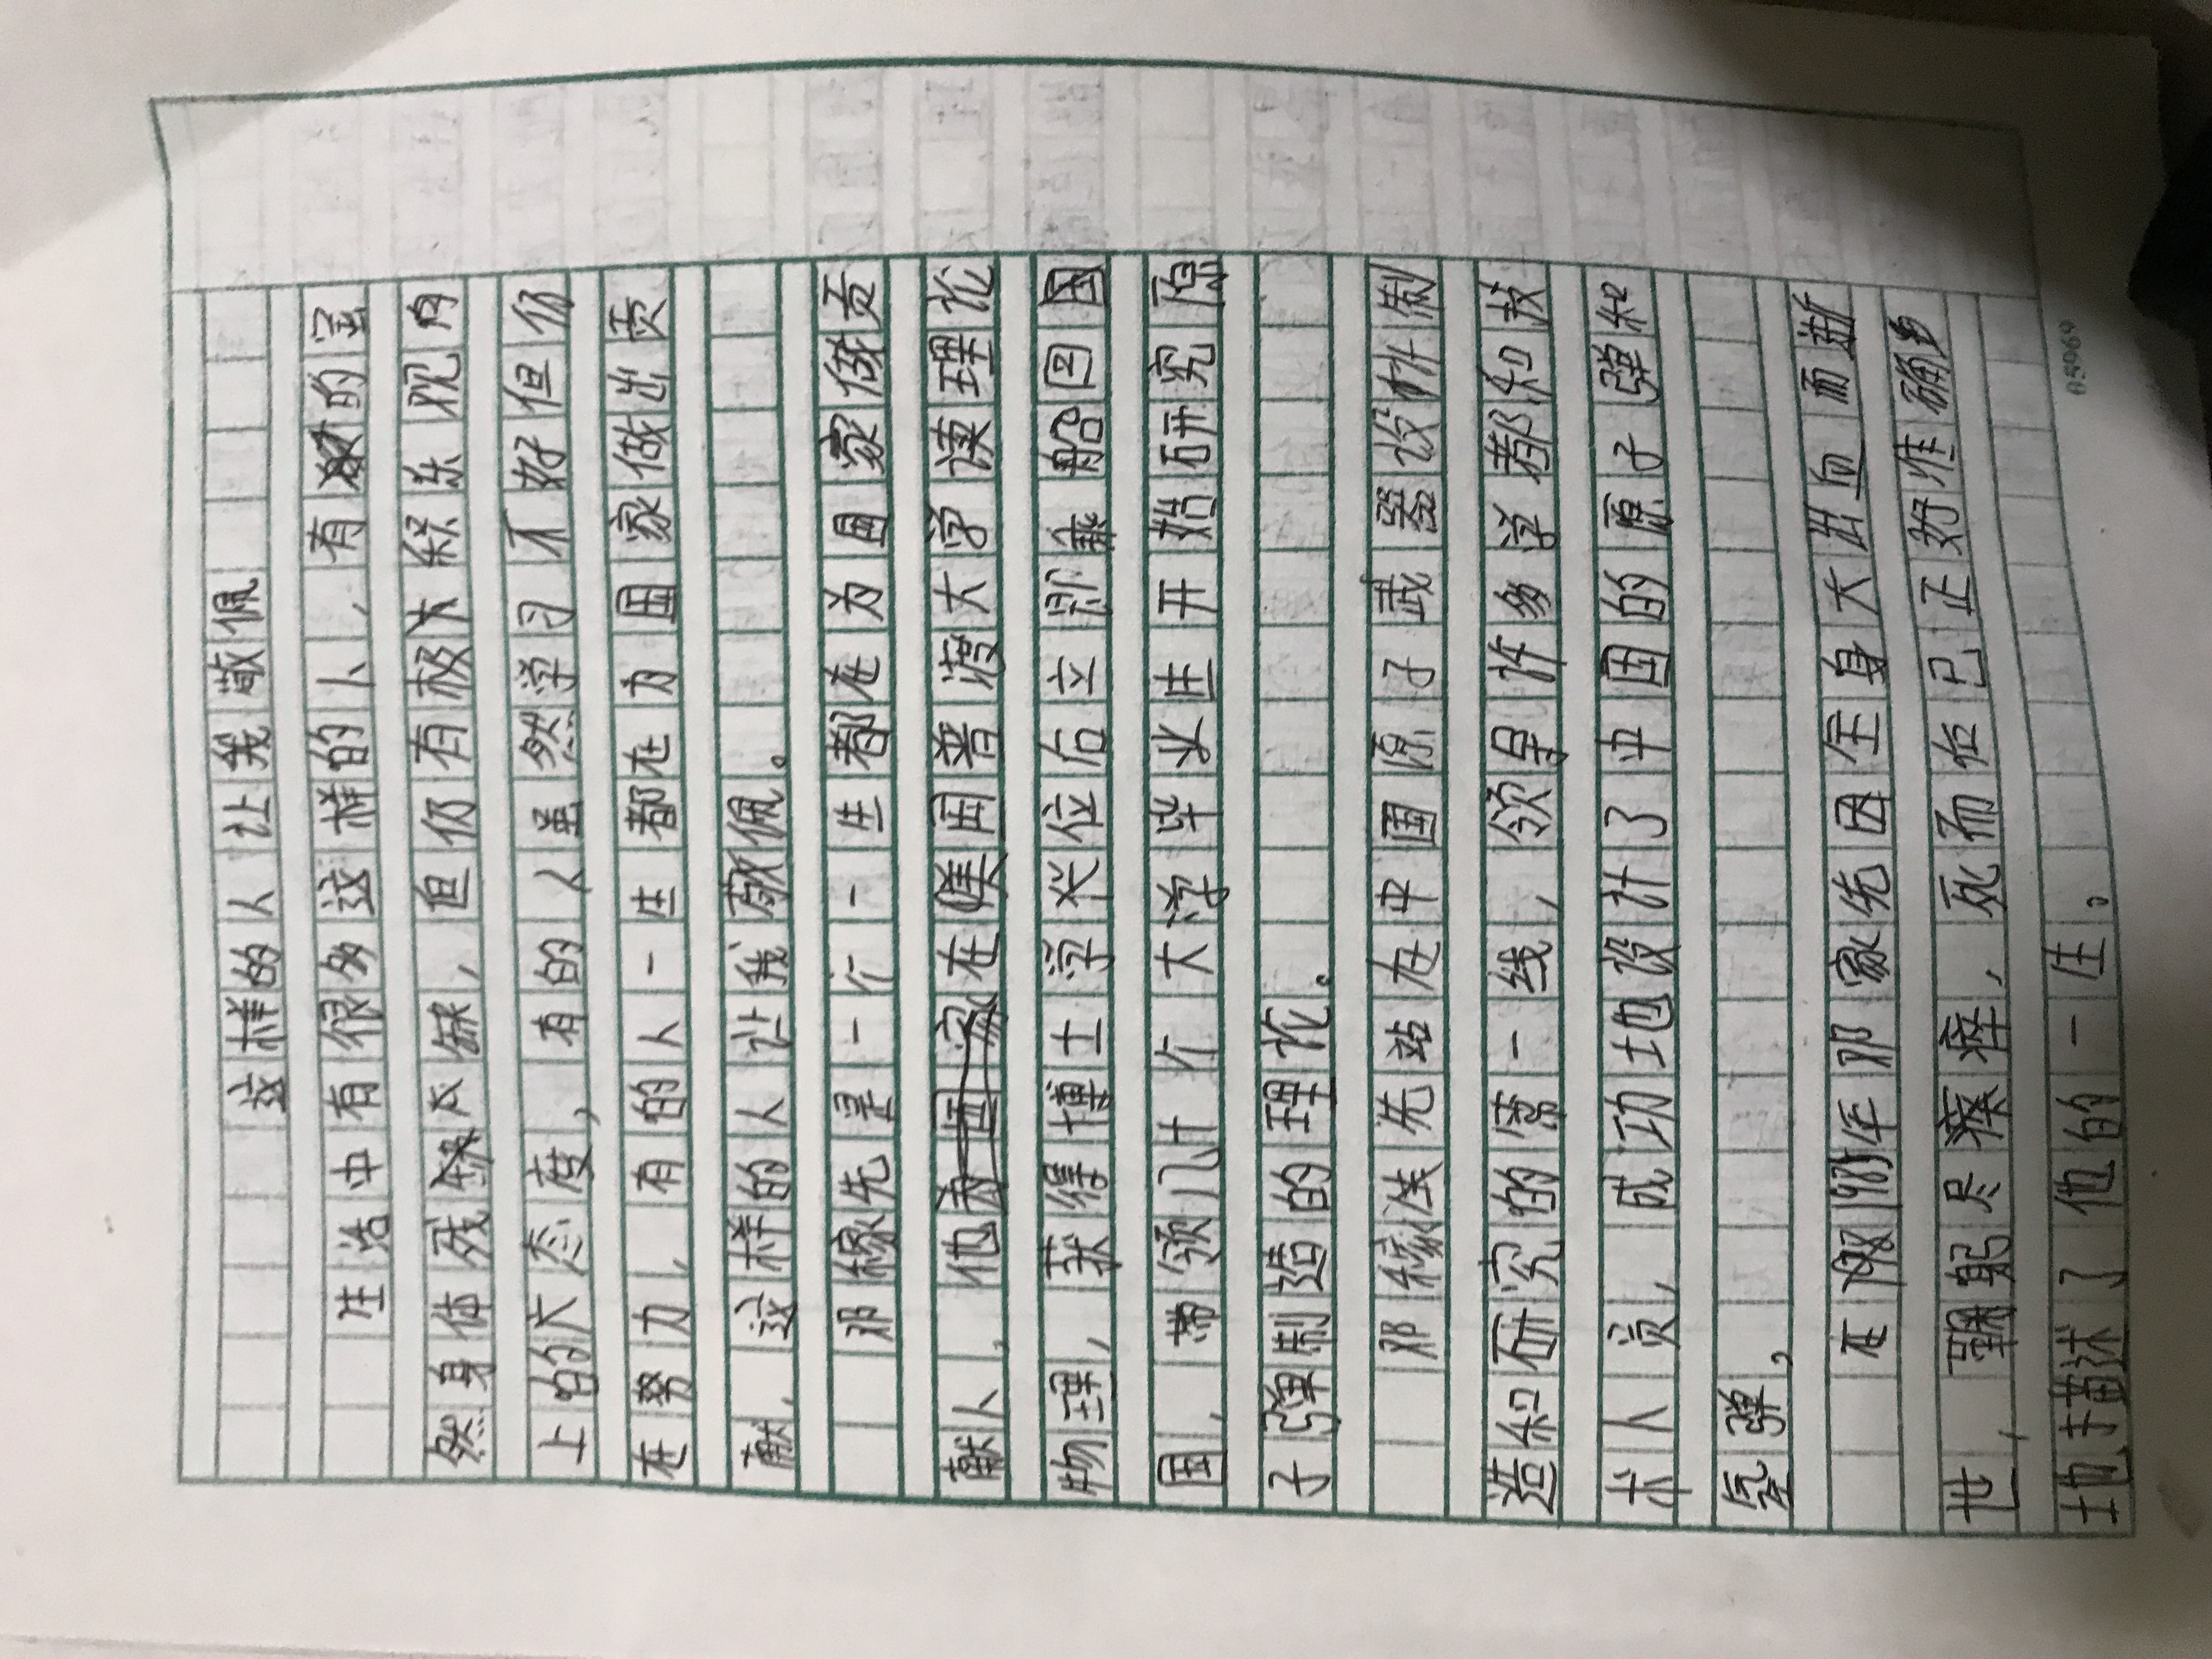 这样的人让我敬佩
生活中有很多这样的人,有的虽
然身体残缺,但仍有极大积乐观向
上的态度,有的人虽然学习不好但仍
在努力,有的人一生都在为国家做出贡
献,这样的人让我敬佩。
邓稼先是一个一生都在为国家做贡
献人,他在美国普渡大学读理论
物理,获得博士学位后立即乘船回国
国,带领几十个大学毕业生开始研究原
子弹制造的理论。
邓稼先站在中国原子武器设计制
造和研究的第一线,领导许多学者和技
术人员,成功地设计了中国的原子弹和
氢弹。
在1986年邓家先因全身大出血而逝
世,鞠躬尽瘁,死而后已正好准确
地描述了他的一生。
03969